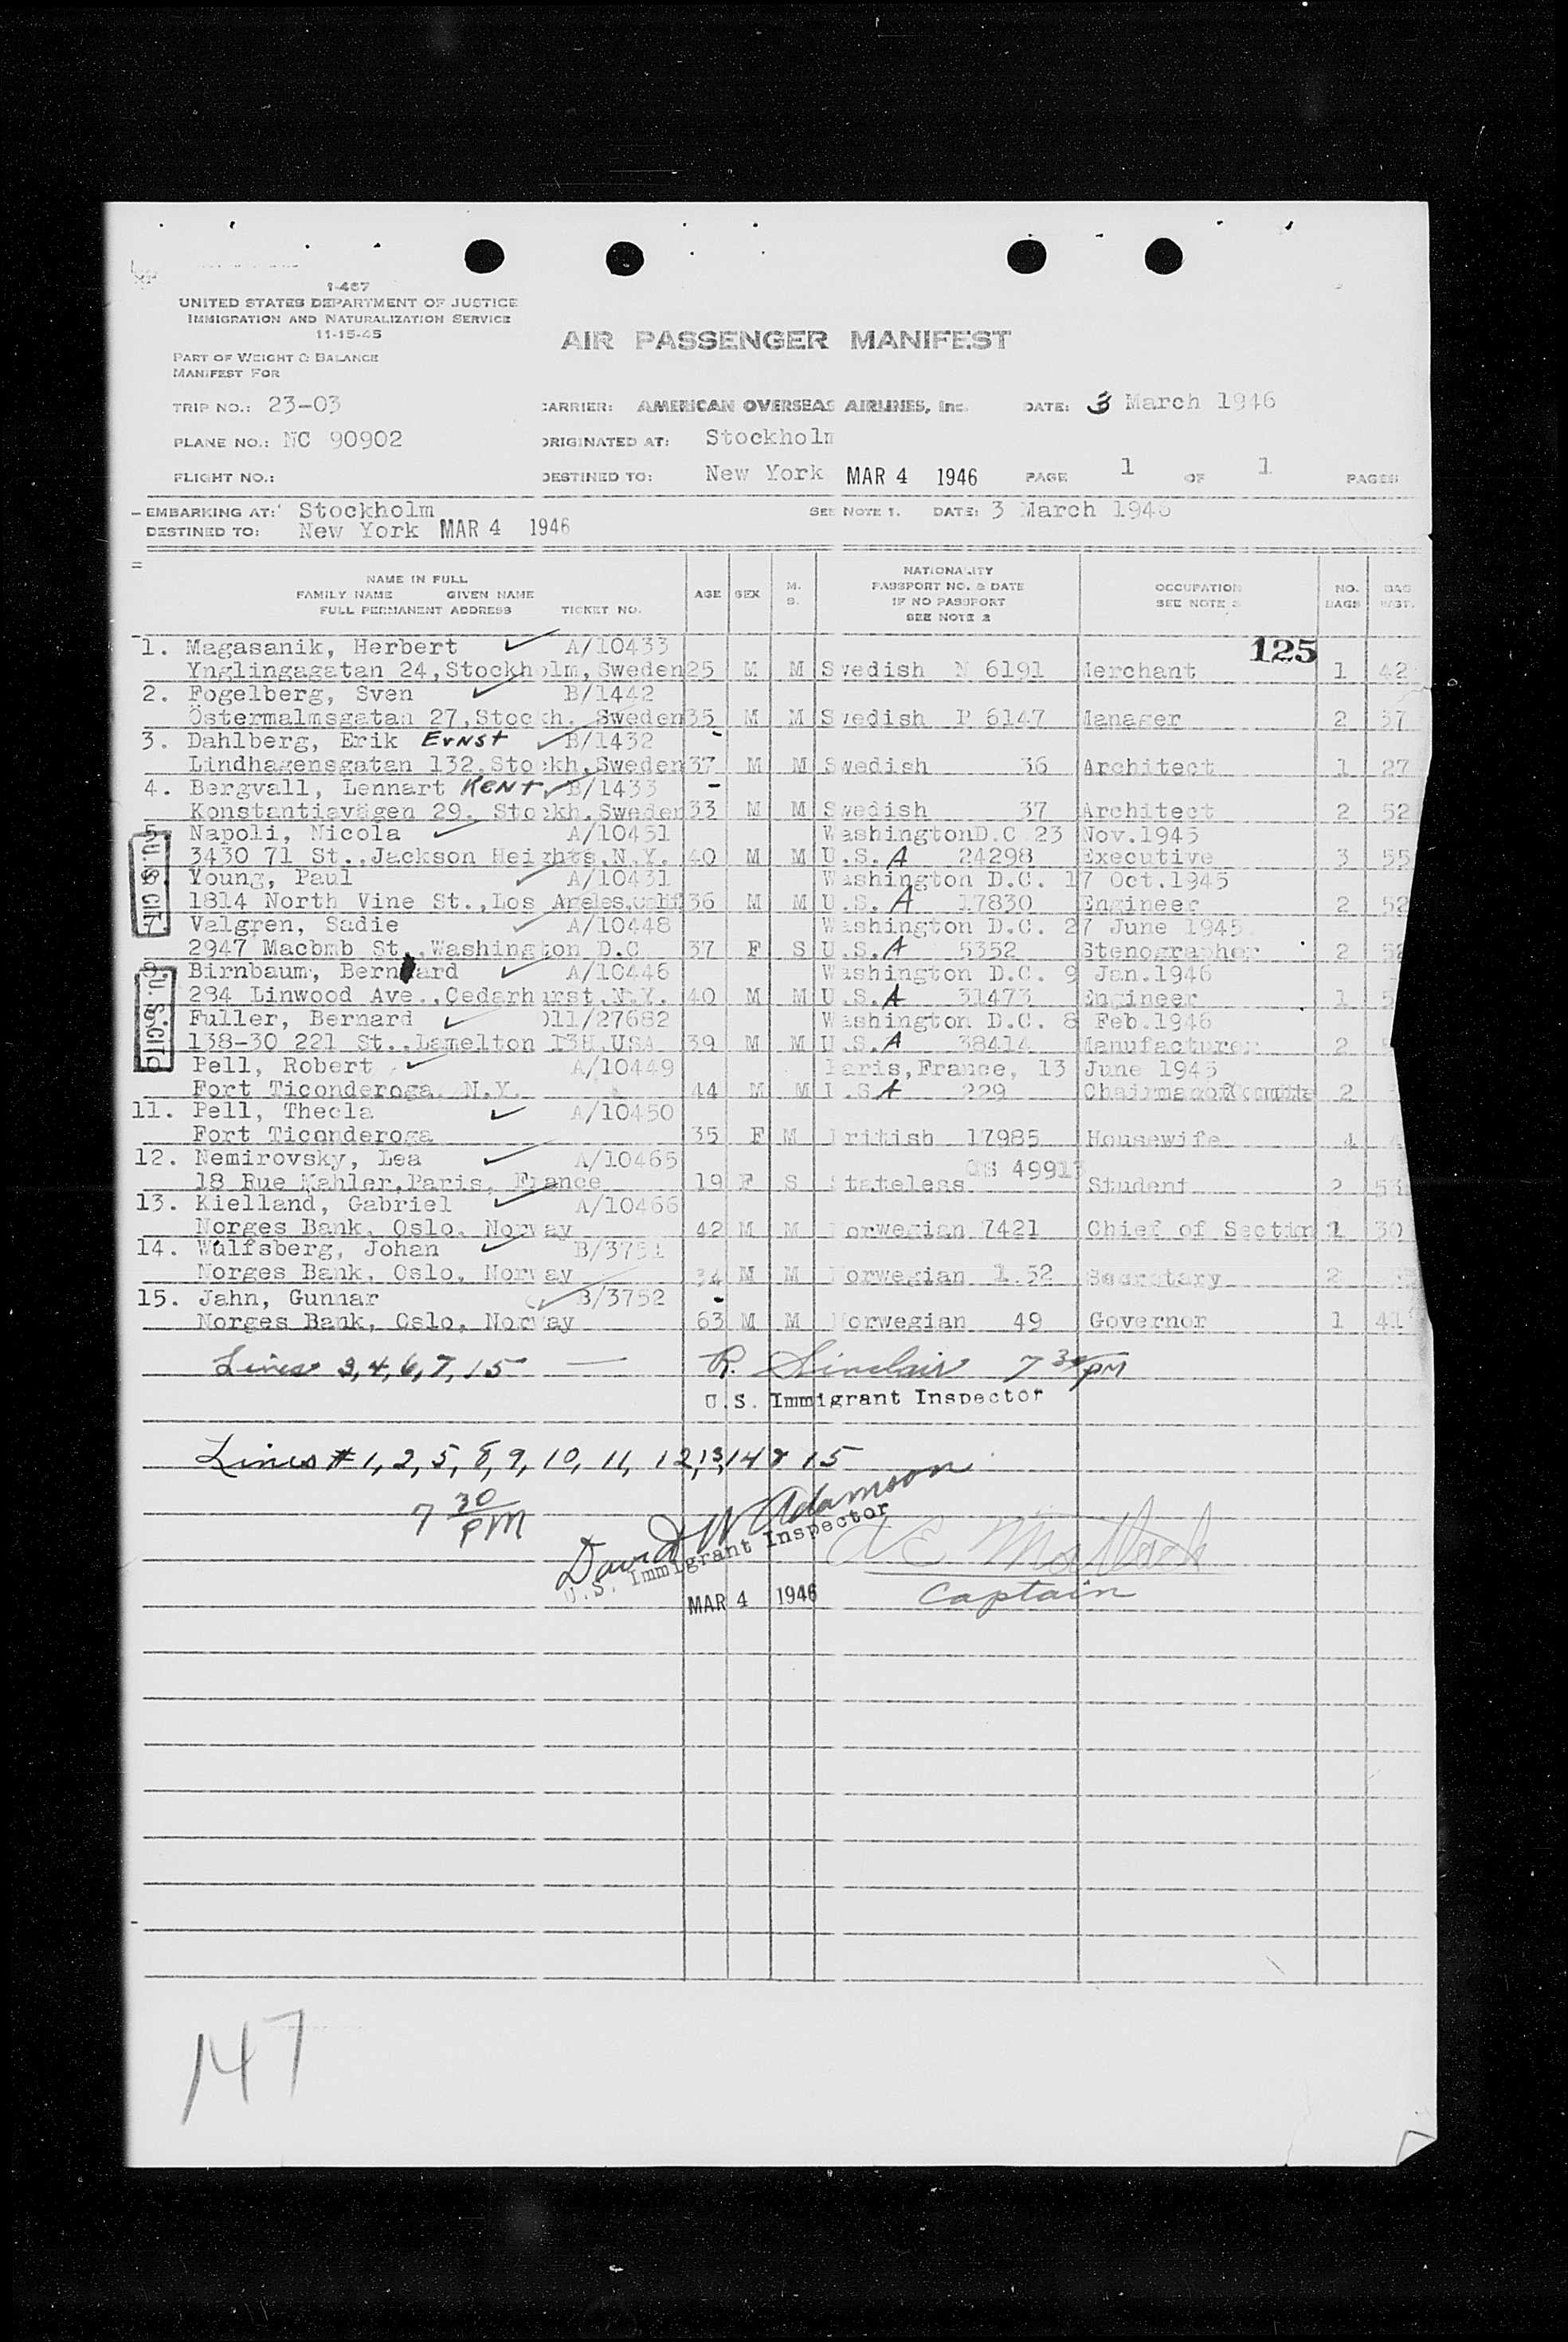 1-467
UNITED STATES DEPARTMENT OF JUSTICE
IMMIGRATION AND NATURALIZATION SERVICE
11-15-45
AIR PASSENGER MANIFEST
PART OF WEIGHT & BALANCE
MANIFEST FOR
TRIP NO.: 23-03 CARRIER: AMERICAN OVERSEAS AIRLINES, Inc. DATE: 3 March 1946
PLANE NO.: NC 90902 ORIGINATED AT: Stockholm
FLIGHT NO.: DESTINED TO: New York MAR 4 1946 PAGE 1 OF 1 PAGES
EMBARKING AT: Stockholm SEE NOTE 1. DATE: 3 March 1946
DESTINED TO: New York MAR 4 1946
NAME IN FULL
FAMILY NAME GIVEN NAME
FULL PERMANENT ADDRESS TICKET NO. AGE SEX M. S. NATIONALITY PASSPORT NO. & DATE IF NO PASSPORT SEE NOTE 2 OCCUPATION SEE NOTE NO. BAGS BAG WGT.
125
1. Magasanik, Herbert A/10433
Ynglingagatan 24,Stockholm,Sweden 25 M M Swedish N 6191 Merchant 1 42
2. Fogelberg, Sven B/1442
Östermalmsgatan 27,Stockh. Sweden 35 M M Swedish P 6147 Manager 2 37
3. Dahlberg, Erik Ernst B/1432
Lindhagensgatan 132,Stockh.Sweden 37 M M Swedish 36 Architect 1 27
4. Bergvall, Lennart Kent B/1433
Konstantiavägen 29. Stockh.Sweden 33 M M Swedish 37 Architect 2 52
Napoli, Nicola A/10451 WashingtonD.C 23 Nov.1945
3430 71 St.,Jackson Heights,N.Y. 40 M M U.S.A 24298 Executive 3 55
Young, Paul A/10431 Washington D.C. 17 Oct.1945
1814 North Vine St.,Los Angeles,Calif 36 M M U.S.A 17830 Engineer 2 52
Valgren, Sadie A/10448 Washington D.C. 27 June 1945
2947 Macbmb St.,Washington D.C 37 F S U.S.A 5352 Stenographer 2 52
Birnbaum, Bernard A/10446 Washington D.C. 9 Jan.1946
284 Linwood Ave.,Cedarhurst.N.Y. 40 M M U.S.A 31473 Engineer 1 5
Fuller, Bernard 011/27682 Washington D.C. 8 Feb.1946
138-30 221 St.,Lamelton 13H.USA 39 M M U.S.A 38414 Manufacturer 2
U.S. CIT
U.S. CIT
Pell, Robert A/10449 Paris,France, 13 June 1945
Fort Ticonderoga. N.Y. 44 M M U.S.A 229 2
11. Pell, Thecla A/10450
Fort Ticonderoga 35 F M British 17985 Housewife 4
12. Nemirovsky, Lea A/10465
18 Rue Mahler,Paris, France 19 F S Stateless 4991 Student 2 53
13. Kielland, Gabriel A/10466
Norges Bank, Oslo, Norway 42 M M Norwegian 7421 Chief of Sectin 1 30
14. Wulfsberg, Johan B/3751
Norges Bank, Oslo, Norway 34 M M Norwegian 1.52 Secretary 2
15. Jahn, Gunnar B/3752
Norges Bank, Oslo, Norway 63 M M Norwegian 49 Governor 1 41
Lines 3,4,6,7,15 — R. Sinclair 7 30 PM
U.S. Immigrant Inspector
Lines # 1, 2, 5, 8, 9, 10, 11, 12, 13, 14 & 15
7 30 PM
David W Adamson
U.S. Immigrant Inspector
MAR 4 1946
Captain
147